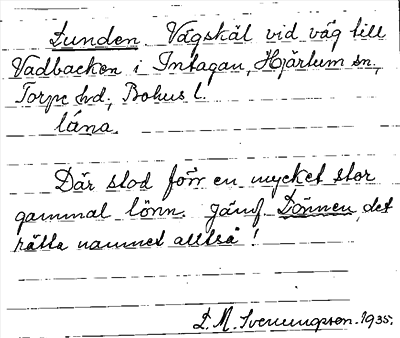 Lunden Vägskäl vid väg till
Vadbacken i Intagan, Hjärtum sn,
Torpe hd, Bohus l.
låna.
Där stod förr en mycket stor
gammal lönn. Jämf. Lönnen, det
rätta namnet alltså!
D. M. Svenungsson. 1935.